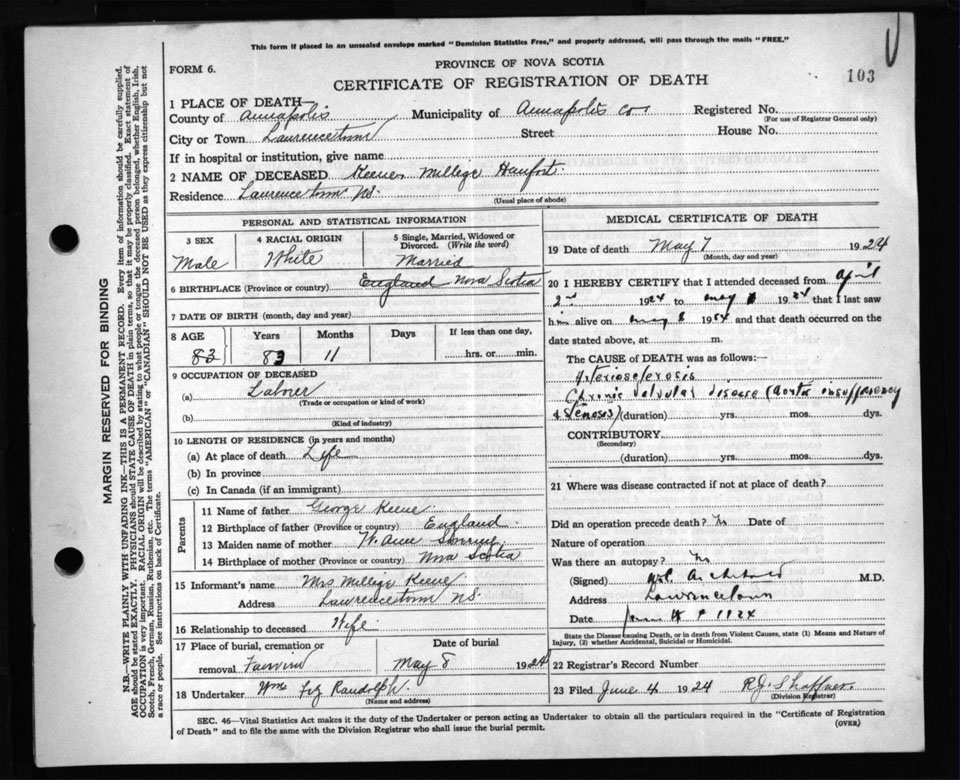 This form if placed in an unsealed envelope marked "Dominion Statistics Free," and properly addressed, will pass through the mails "FREE."
PROVINCE OF NOVA SCOTIA
FORM 6.
CERTIFICATE OF REGISTRATION OF DEATH
103
1 PLACE OF DEATH—
County of Annapolis Municipality of Annapolis Co. Registered No.
(For use of Registrar General only)
City or Town Lawrencetown Street House No.
If in hospital or institution, give name
2 NAME OF DECEASED Millege
Residence Lawrencetown NS.
(Usual place of abode)
PERSONAL AND STATISTICAL INFORMATION
3 SEX 4 RACIAL ORIGIN 5 Single, Married, Widowed or Divorced. (Write the word)
Male White Married
6 BIRTHPLACE (Province or country) England Nova Scotia
7 DATE OF BIRTH (month, day and year)
8 AGE Years Months Days If less than one day,
83 83 11 hrs. or min.
9 OCCUPATION OF DECEASED
(a) Laborer
(Trade or occupation or kind of work)
(b)
(Kind of industry)
10 LENGTH OF RESIDENCE (in years and months)
(a) At place of death Life
(b) In province
(c) In Canada (if an immigrant)
Parents
11 Name of father George Keene
12 Birthplace of father (Province or country) England
13 Maiden name of mother Ann
14 Birthplace of mother (Province or country) Nova Scotia
15 Informant's name Mrs Millege Keene
Address Lawrencetown NS.
16 Relationship to deceased Wife
17 Place of burial, cremation or Date of burial
removal Fairview May 8 1924
18 Undertaker Wm Randolph
(Name and address)
MEDICAL CERTIFICATE OF DEATH
19 Date of death May 7 1924
(Month, day and year)
20 I HEREBY CERTIFY that I attended deceased from April
2nd 1924 to May 1924 that I last saw
him alive on May 1924 and that death occurred on the
date stated above, at m.
The CAUSE of DEATH was as follows:—
Arteriosclerosis
Chronic valvular disease (aortic insufficiency
& stenosis) (duration) yrs. mos. dys.
CONTRIBUTORY
(Secondary)
(duration) yrs. mos. dys.
21 Where was disease contracted if not at place of death?
Did an operation precede death? No Date of
Nature of operation
Was there an autopsy? No
(Signed) Archibald M.D.
Address Lawrencetown
Date 1924
State the Disease causing Death, or in death from Violent Causes, state (1) Means and Nature of
Injury, (2) whether Accidental, Suicidal or Homicidal.
22 Registrar's Record Number
23 Filed June 4 1924 R.J. Shaffner.
(Division Registrar)
SEC. 46—Vital Statistics Act makes it the duty of the Undertaker or person acting as Undertaker to obtain all the particulars required in the "Certificate of Registration
of Death" and to file the same with the Division Registrar who shall issue the burial permit.
(OVER)
MARGIN RESERVED FOR BINDING
N.B.—WRITE PLAINLY WITH UNFADING INK—THIS IS A PERMANENT RECORD. Every item of information should be carefully supplied.
AGE should be stated EXACTLY. PHYSICIANS should STATE CAUSE OF DEATH in plain terms, so that it may be properly classified. Exact statement of
OCCUPATION is very important. RACIAL ORIGIN will be described by stating to what people or tongue the deceased person belonged, whether English, Irish,
Scotch, French, German, Russian, Ruthenian, etc. The terms "AMERICAN" or "CANADIAN" SHOULD NOT BE USED as they express citizenship but not
a race or people. See instructions on back of Certificate.